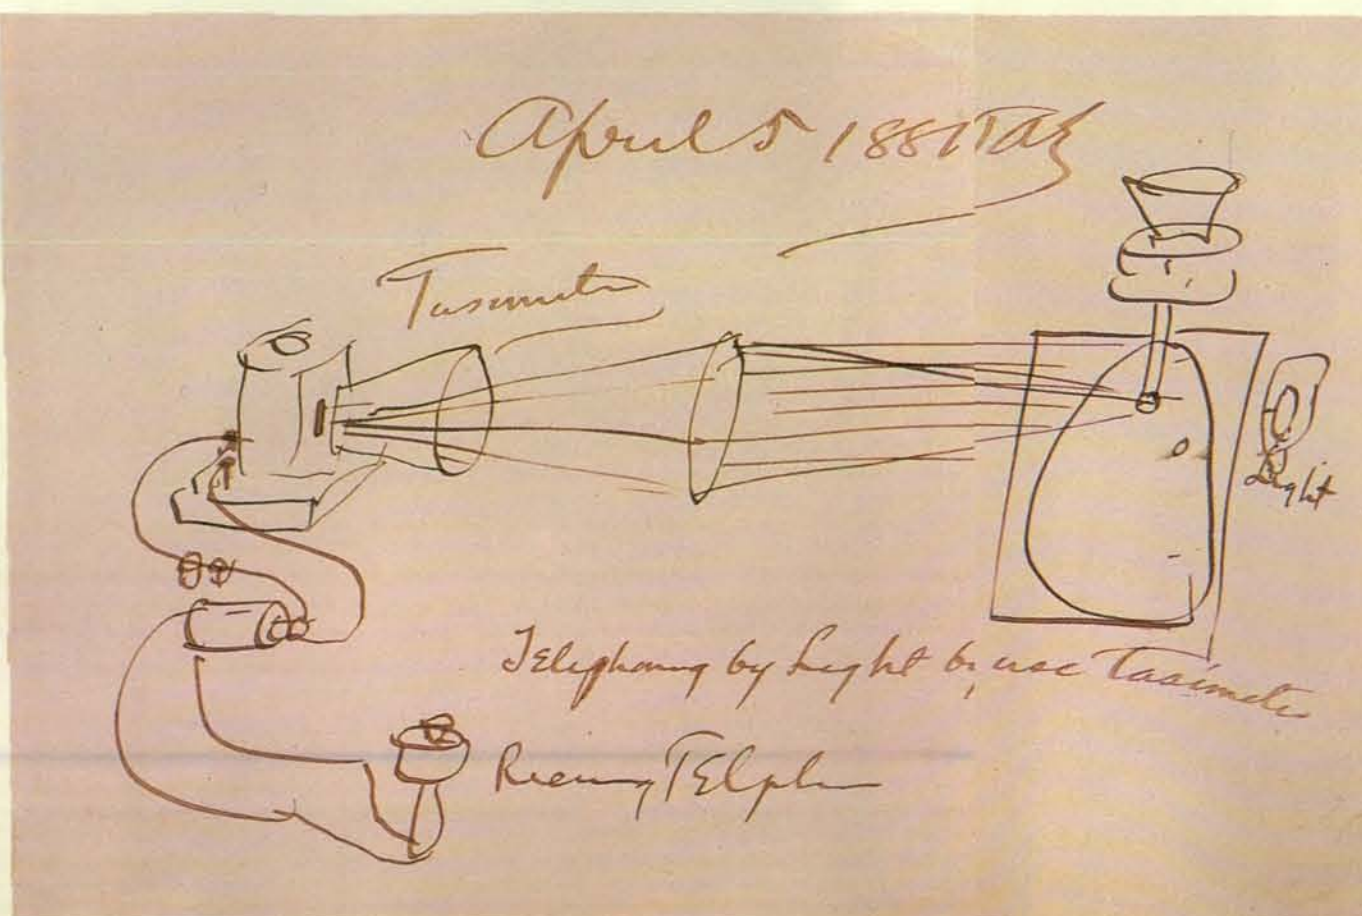 April 5 1881 TAE
Tasimeter
Light
Telephoning by Light by use Tasimeter
Receiving Telphn